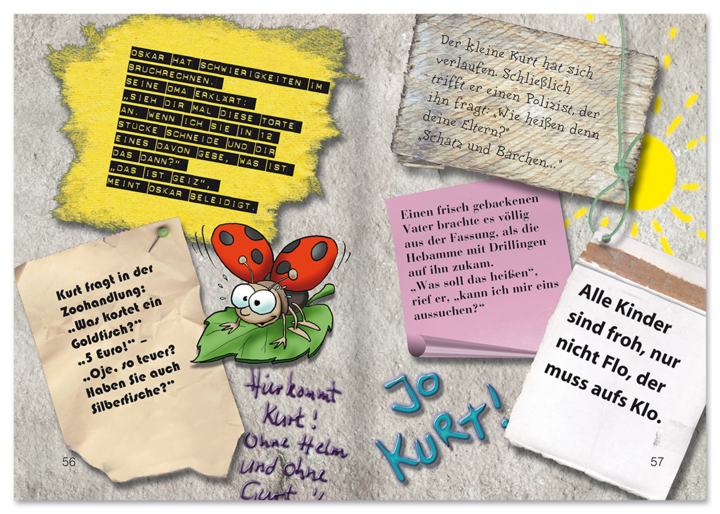 OSKAR HAT SCHWIERIGKEITEN IM
BRUCHRECHNEN.
SEINE OMA ERKLÄRT:
„SIEH DIR MAL DIESE TORTE
AN. WENN ICH SIE IN 12
STÜCKE SCHNEIDE UND DIR
EINES DAVON GEBE, WAS IST
DAS DANN?“
„DAS IST GEIZ“,
MEINT OSKAR BELEIDIGT.
Kurt fragt in der
Zoohandlung:
„Was kostet ein
Goldfisch?“
„5 Euro!“ –
„Oje, so teuer?
Haben Sie auch
Silberfische?“
Hier kommt
Kurt!
Ohne Helm
und ohne
Gurt
56
Der kleine Kurt hat sich
verlaufen. Schließlich
trifft er einen Polizist, der
ihn fragt: „Wie heißen denn
deine Eltern?“
„Schatz und Bärchen...“
Einen frisch gebackenen
Vater brachte es völlig
aus der Fassung, als die
Hebamme mit Drillingen
auf ihn zukam.
„Was soll das heißen“,
rief er, „kann ich mir eins
aussuchen?“
Alle Kinder
sind froh, nur
nicht Flo, der
muss aufs Klo.
JO
KURT!
57